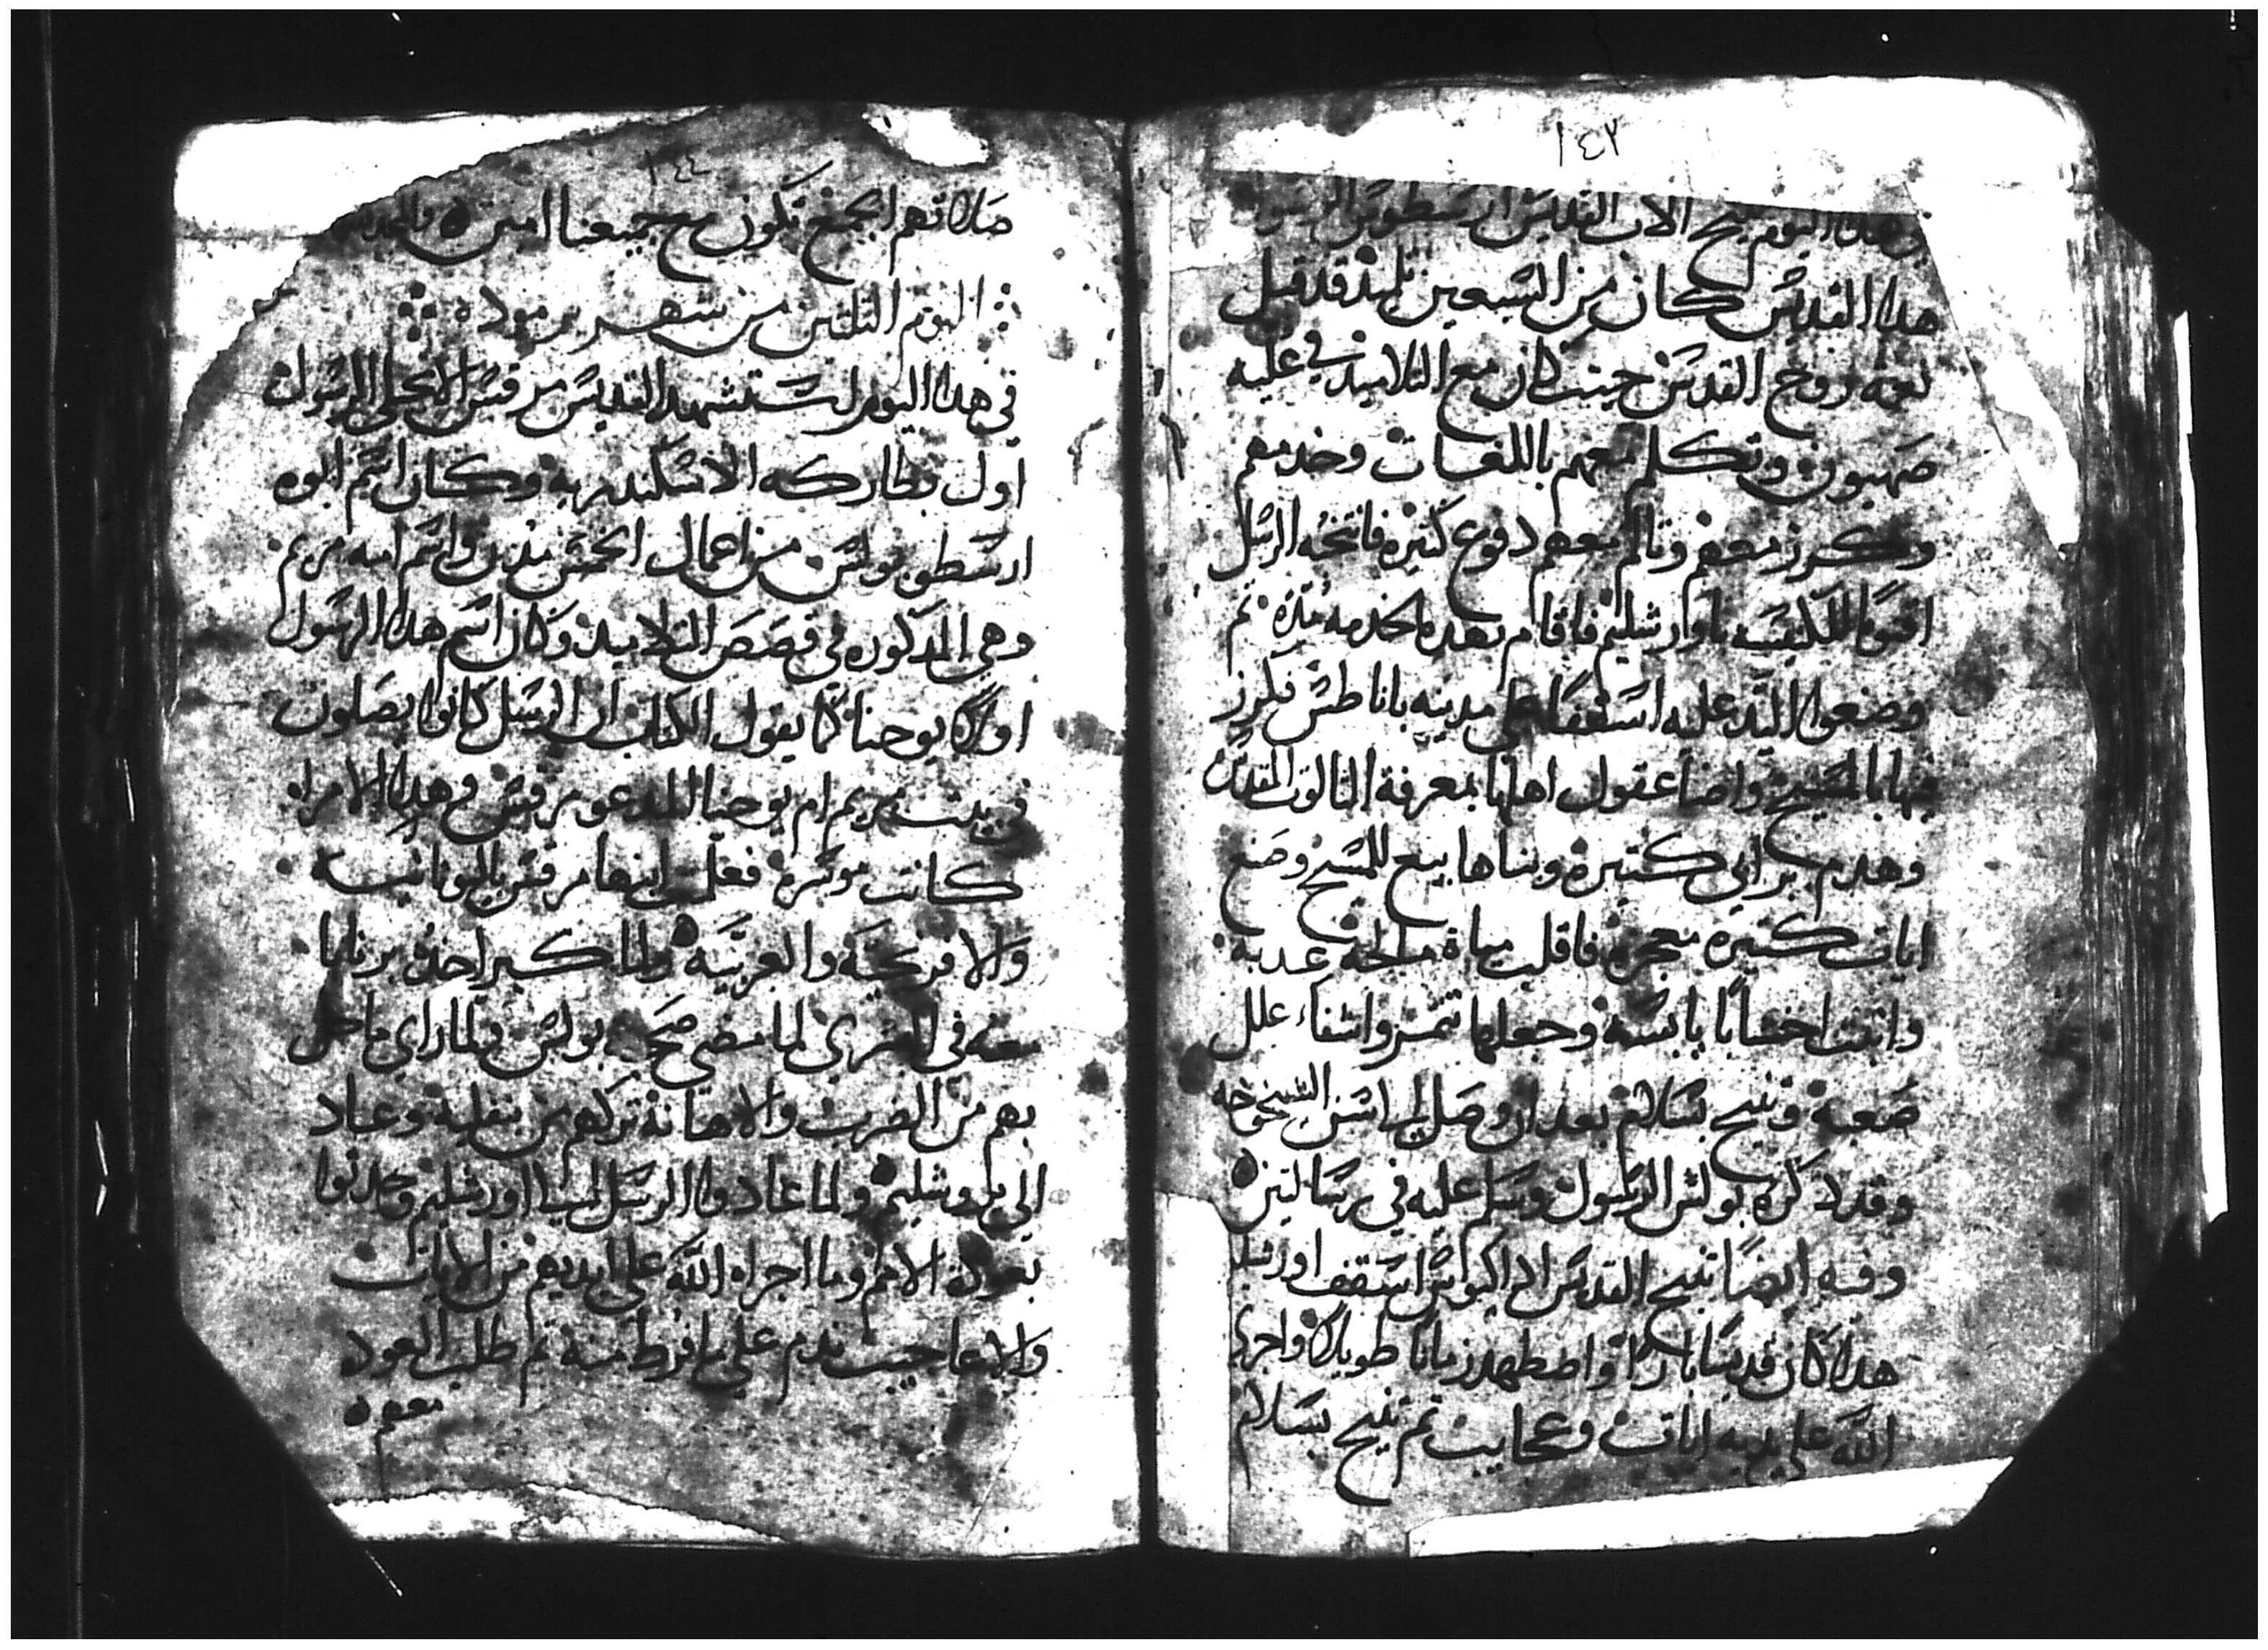 ١٤٣
هذا اليوم تنيح الاب القديس ارسطوبس الرسول
هدا القديس كان من السبعين تلميذ قد قبل
نعمة روح القدس حيث كان مع التلاميذ في علية
صهيون وتكلم معهم باللغات وخدمهم
وكرز معهم وتالم معهم دفوع كتيره فانتخبه الرسل
باورشليم فاقام بهده الخدمه مده تم
وضعوا اليد عليه اسقفا على مدينه باناطس فكرز
فيها بالمسيح واضا عقول اهلها بمعرفة التالوت المقدس
وهدم برابي كتيرة وبناها بيع للمسيح وصنع
ايات كتيره معجزة فاقلب مياة مالحة عدبة
وانبت اخشابا يابسة وجعلها تتمر واشفاء علل
صعبة وتنيح بسلام بعد ان وصل الى اسن الشيخوخه
وقد دكره بولس الرسول وسلم عليه في رسالته
وفيه ايضا تنيح القديس اسقف اورشليم
هدا كان قديسا بارا واضطهد زمانا طويلا واجرى
الله على يديه ايات وعجايب تم تنيح بسلام
١٤٤
صلاتهم الجميع تكون مع جميعنا امين
اليوم التلتين من شهر برموده
في هدا اليوم استشهد القديس مرقس الانجيلي الرسول
اول بطاركه الاسكندرية وكان اسم ابوه
ارسطوبولس من اعمال الخمس مدن واسم امه مريم
وهي المدكوره في قصص التلاميد وكان اسم هدا الرسول
اولا يوحنا كما يقول الكتاب ان الرسل كانوا يصلون
في بيت مريم ام يوحنا المدعو مرقس وهده الامراه
كانت موسرة فعلمت ابنها مرقس اليونانية
والافرنجية والعربية ولما كبر اخده برنابا
معه في البشرى لما مضى صحبة بولس ولما راى ما حل
بهم من الضرب والاهانة تركهم من بنفلية وعاد
الى يروشليم ولما عادوا الرسل الى اورشليم وحدثوا
بعودة الامم وما اجراه الله على ايديهم من الايات
والاعاجيب ندم على ما فرط منة تم طلب العوده
معهم